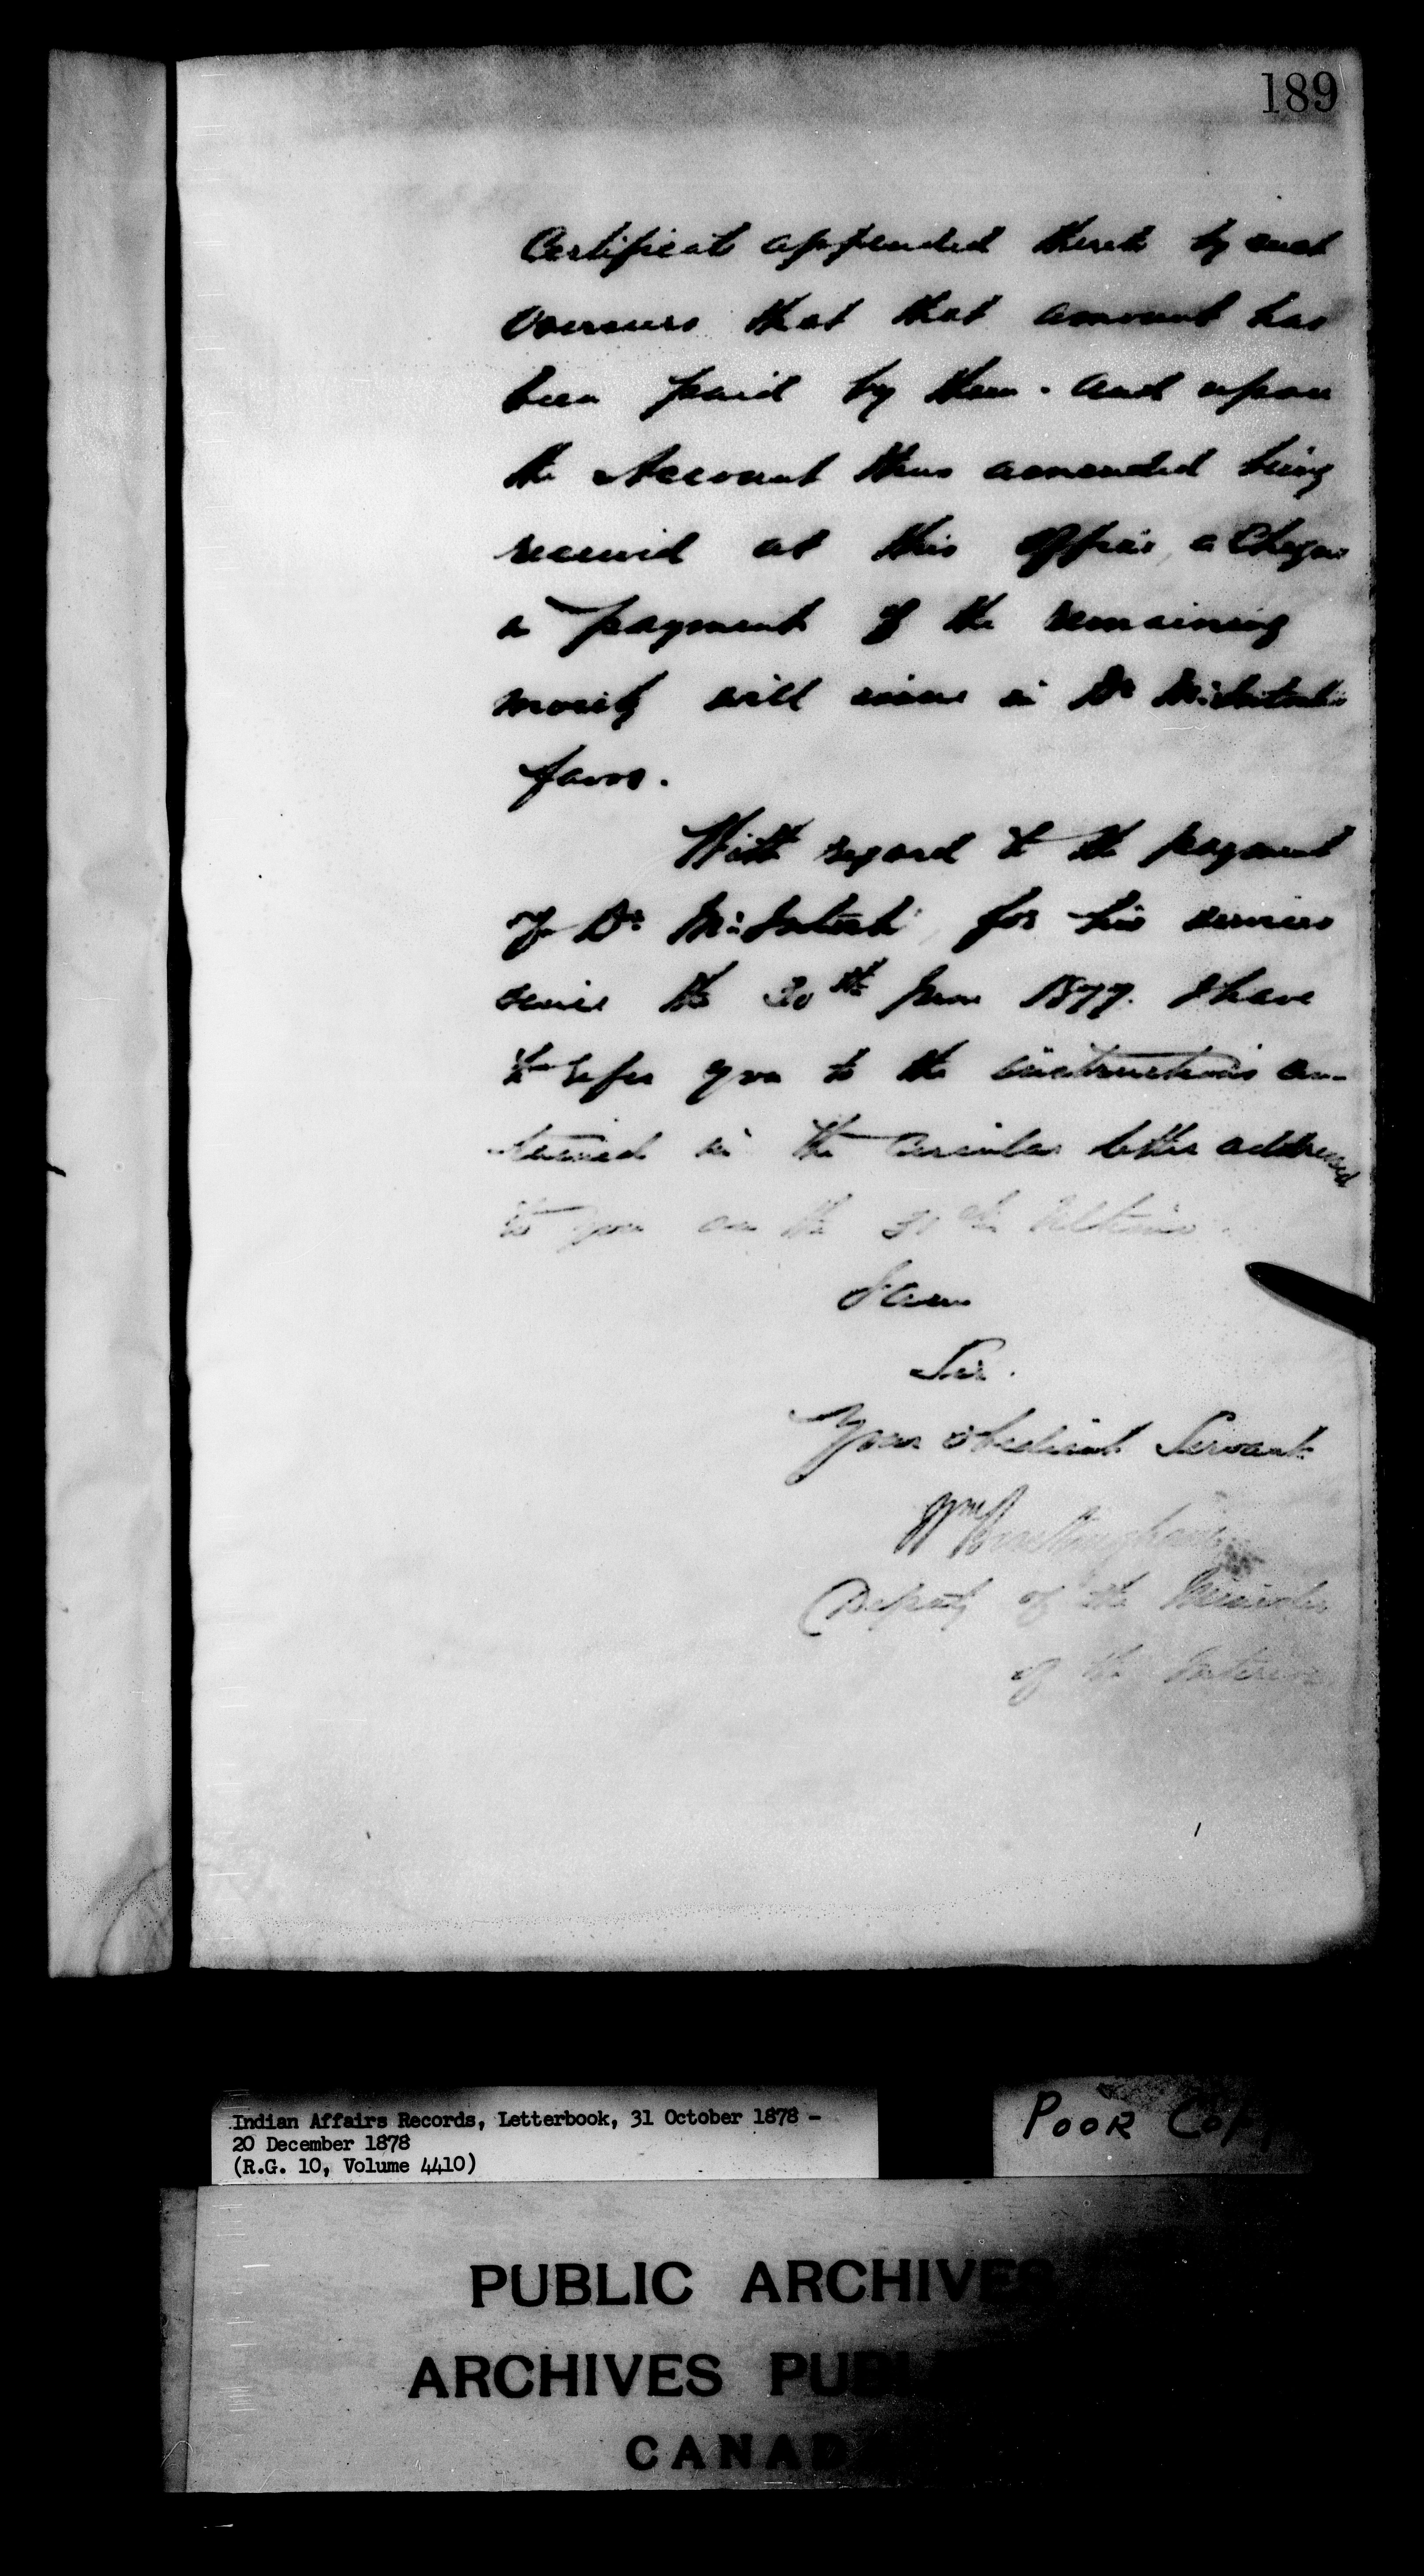 189
Certificate appended thereto by such
Overseers that that amount has
been paid by them. and upon
the Account thus amended being
received at this Office, a Cheque
in payment of the remaining
moiety will issue in Dr McIntosh's
favor.
With regard to the payment
of Dr McIntosh, for his services
since the 30th June 1877. I have
to refer you to the instructions con-
tained in the Circular letter addressed
to you on the Ultimo.
I am
Sir.
Your obedient Servant
Wm Buckingham
Deputy of the Minister
of the Interior
Indian Affairs Records, Letterbook, 31 October 1878 -
20 December 1878
(R.G. 10, Volume 4410)
POOR COPY
PUBLIC ARCHIVES
ARCHIVES PUBL
CANADA